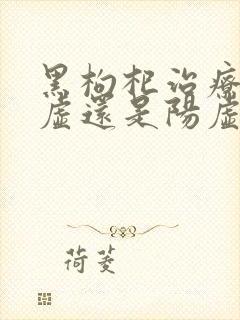 黑枸杞治療
虛還是陽虛
荷菱